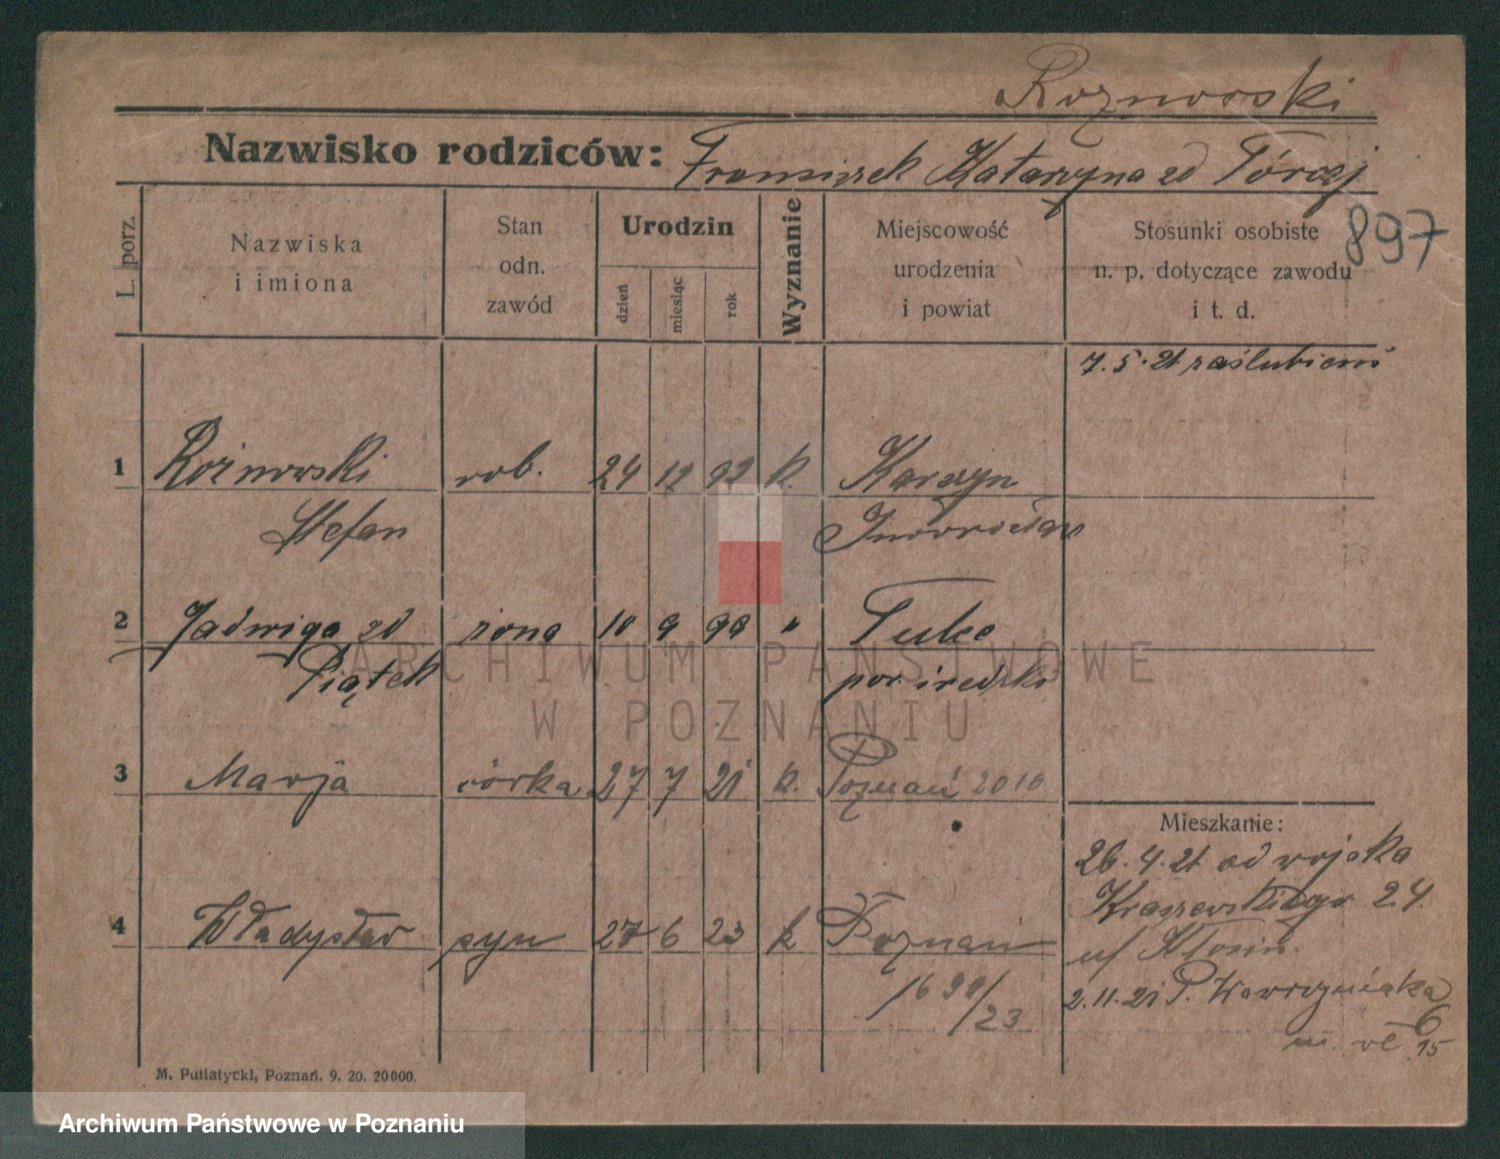 Roznowski
Nazwisko rodziców: Franciszek Katarzyna zd
897
L. porz.
Nazwiska
i imiona
Stan
odn.
zawód
Urodzin
dzień
miesiąc
rok
Wyznanie
Miejscowość
urodzenia
i powiat
Stosunki osobiste
n. p. dotyczące zawodu
i t. d.
7. 5. 21 zaślubieni
1 Rożnowski rob. 24 12 92 k.
Stefan Inowrocław
2 Jadwiga zd żona 10 9 99 " Tulce
Piątek pow średzki
3 Marja córka 27 7 21 k. Poznań 2010
Mieszkanie:
26. 4. 21 od wojska
Kraszewskiego 24
4 Władysław syn 27 6 23 k Poznań
1690/23
2. 11. 21 P. Wawrzyniaka
6
15
M. Putiatycki, Poznań. 9. 20. 20000.
ARCHIWUM PAŃSTWOWE
W POZNANIU
Archiwum Państwowe w Poznaniu